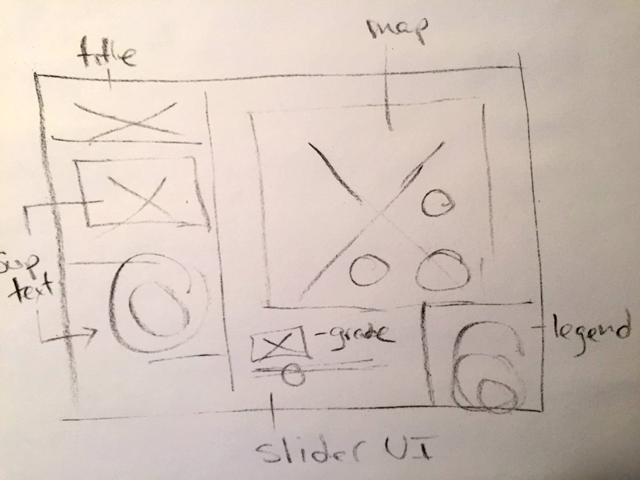 title
map
Sup
text
-grade
legend
slider UI